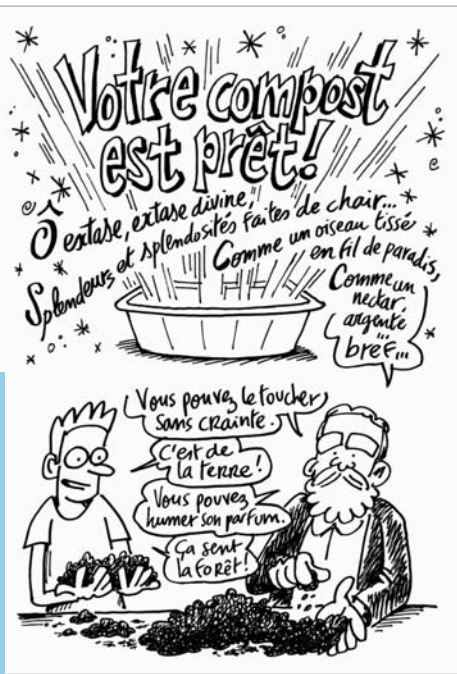 Votre compost
est prêt!
Ô extase, extase divine,
Splendeurs et splendosités faites de chair...
Comme un oiseau tissé
en fil de paradis,
Comme un
nectar,
argenté
...
bref...
Vous pouvez le toucher
sans crainte.
C'est de
la terre!
Vous pouvez
humer son parfum.
Ça sent
la forêt!